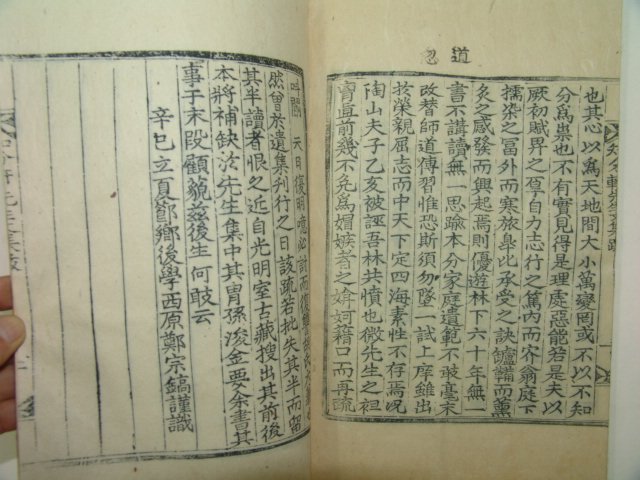 道 覓
也其心以爲天地間大小萬變罔或不以不知
分爲祟也不有實見得是理處惡能若是夫以
厥初賦界之厚自力志行之篤內而岑翁庭下
擩染之冨外而寒旅皐比承受之訣鑪鞴而薰
炙之感發而興起焉則優遊林下六十年無一
書不講讀無一思踰本分家庭遺範不敢毫末
改替師道傳習惟恐斯須勿墜一試上庠雖出
於榮親屈志而中天下定四海素性不存焉况
陶山夫子乙亥被誣吾林共憤也微先生之袒
冑直前幾不免爲媢嫉者之媕婀籍口而再疏
叫閽天日復明
然曾於遺集刊行之日該疏若批失其半而留
其半讀者恨之近自光明室古藏搜出其前後
本將補缺於先生集中其胄孫浚金要余書其
事于末段顧藐玆後生何敢云
辛巳立夏節鄕後學西原鄭宗鎬謹識